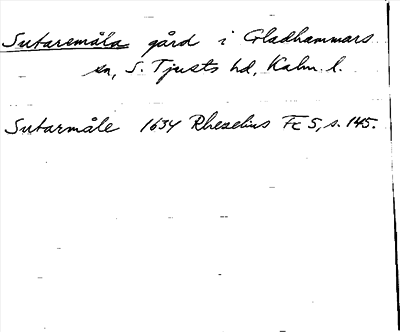 Sutaremåla gård i Gladhammars
sn, S. Tjusts hd, Kalm. l.
Sutarmåle 1634 Rhezelius Fc 5, s. 145.